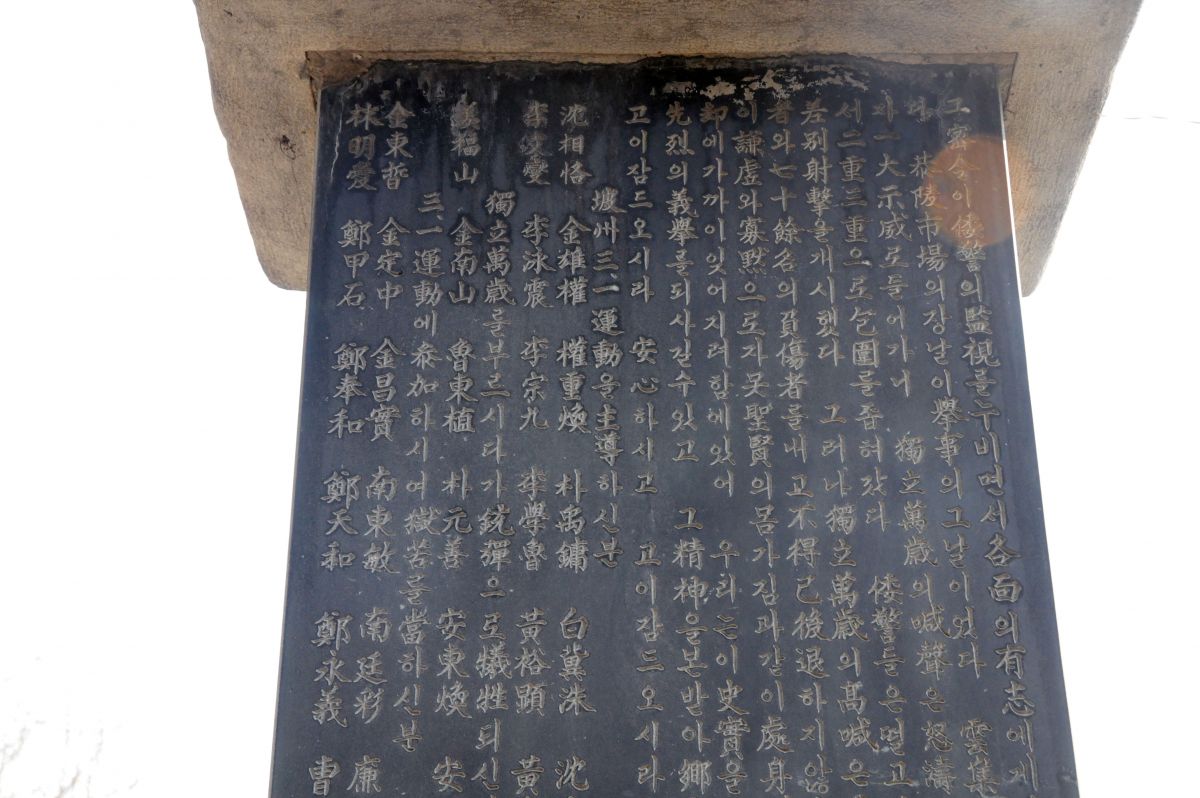 그密令이倭警의監視를누비면서各面의有志에게
恭陵市場의장날이擧事의그날이였다 雲集
一大示威로들어가니 獨立萬歲의喊聲은怒濤
서二重三重으로包圍를좁혀갔다 倭警들은멀고
差別射擊을개시했다 그러나獨立萬歲의高喊은
者와七十餘名의負傷者를내고不得已後退하지않
이謙虛와寡黙으로자못聖賢의몸가짐과같이處身
却에가까이잊어지려함에있어 우리는이史實을
先烈의義擧를되사길수있고 그精神을본받아鄕
고이잠드오시라 安心하시고 고이잠드오시라
坡州三.一運動을主導하신분
沈相恪 金雄權 權重煥 朴禹鏞 白冀洙 沈
李泳震 李宗九 李學魯 黃裕顯 黃
獨立萬歲를부르시다가銃彈으로犧牲되신
福山 金南山 魯東植 朴元善 安東煥 安
三.一運動에參加하시여獄苦를當하신분
金東哲 金定中 金昌實 南東敏 南廷彩 廉
林明愛 鄭甲石 鄭奉和 鄭天和 鄭永義 曺